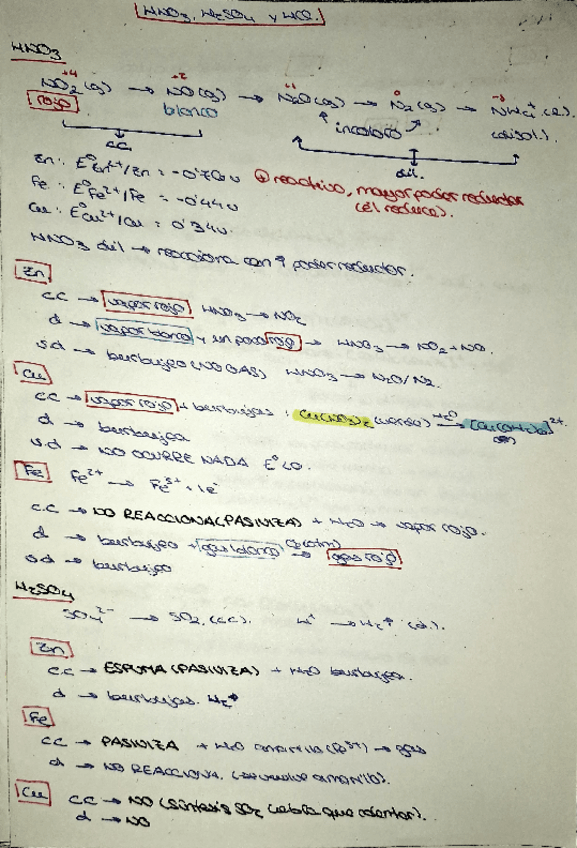 HNO3, H2SO4 y HCl.
HNO3
+4 +2 +1 0 -3
NO2(g) → NO(g) → N2O(g) → N2(g) → NH4+ (d.)
rojo blanco incoloro (disol.)
cc dil.
Zn: E°Zn2+/Zn = -0'76v ⊕ reactivo, mayor poder reductor
Fe: E°Fe2+/Fe = -0'44v (él reduce).
Cu: E°Cu2+/Cu = 0'34v.
HNO3 dil → reacciona con ↑ poder reductor.
Zn
cc → vapor rojo HNO3 → NO2
d → vapor blanco y un poco rojo → HNO3 → NO2 + NO.
sd → burbujeo (NO GAS) HNO3 → N2O/N2.
Cu
cc → vapor rojo + burbujas : Cu(NO3)2 (verde) H2O→ [Cu(OH2)6]2+.
d → burbujea
s.d → NO OCURRE NADA E°<0.
Fe Fe2+ → Fe3+ + 1e-
c.c → NO REACCIONA (PASIVIZA) + H2O → vapor rojo.
d → burbujeo + gas blanco → gas rojo
sd → burbujeo
H2SO4
SO4 2- → SO2 (cc). H+ → H2↑ (d.).
Zn
c.c → ESPUMA (PASIVIZA) + H2O burbujea.
d → burbujas. H2↑
Fe
cc → PASIVIZA + H2O amarillo (Fe3+) → gas
d → NO REACCIONA. (se vuelve amarillo).
Cu cc → NO (síntesis SO2 había que calentar).
d → NO